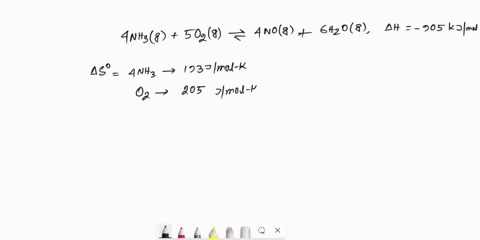 4NH₃(8) + 5O₂(8) ⇌ 4NO(8) + 6H₂O(8), ΔH = -905 kJ/mol
ΔS⁰ = 4NH₃ → 193 J/mol-K
O₂ → 205 J/mol-K